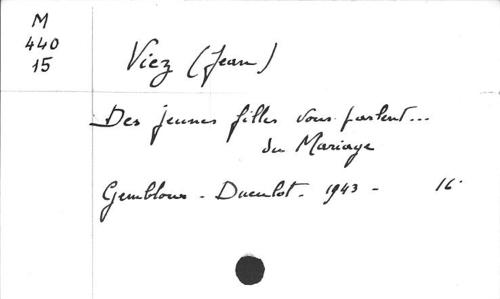 M
440
15
Viez (Jean)
Des jeunes filles vous parlent...
du Mariage
Gembloux - Duculot - 1943 - 16°